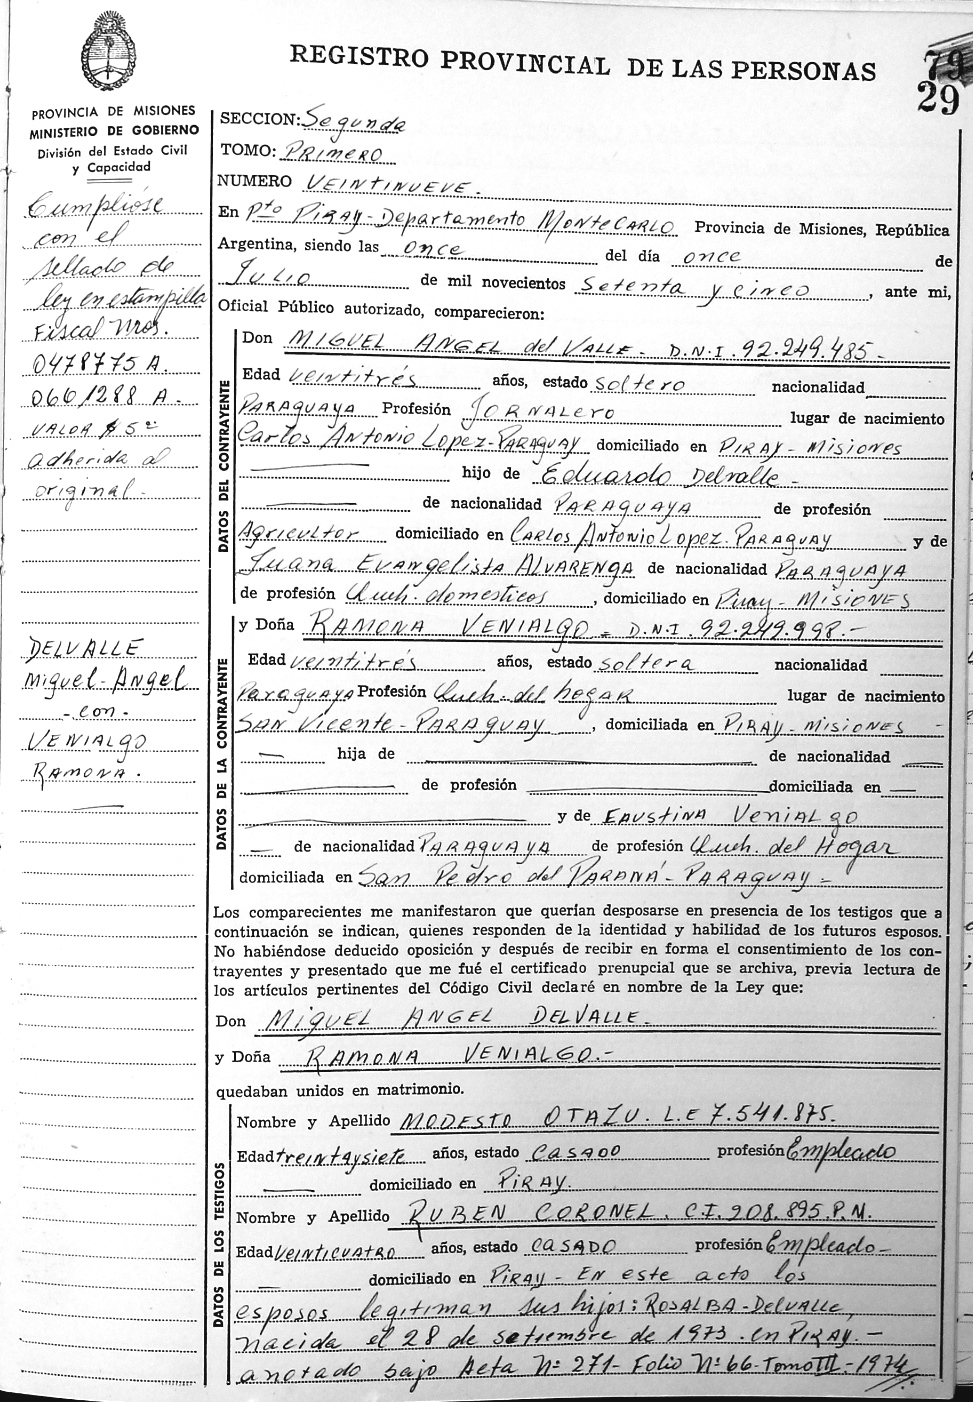 REGISTRO PROVINCIAL DE LAS PERSONAS
79
29
PROVINCIA DE MISIONES
MINISTERIO DE GOBIERNO
División del Estado Civil
y Capacidad
Cumplióse
con el
sellado de
ley en estampilla
Fiscal Nros.
0478775 A.
0661288 A.
VALOR $ 5
adherida al
original.
DELVALLE
Miguel-Angel
-con-
VENIALGO
RAMONA.
SECCION: Segunda
TOMO: PRIMERO
NUMERO VEINTINUEVE.
En Pto PIRAY-Departamento MONTECARLO Provincia de Misiones, República
Argentina, siendo las once del día once de
JULIO de mil novecientos Setenta y cinco, ante mi,
Oficial Público autorizado, comparecieron:
DATOS DEL CONTRAYENTE
Don MIGUEL ANGEL del VALLE - D.N.I. 92.249.485-
Edad veintitrés años, estado soltero nacionalidad
PARAGUAYA Profesión JORNALERO lugar de nacimiento
Carlos ANTONIO LOPEZ-PARAGUAY domiciliado en PIRAY-MISIONES
hijo de Eduardo Delvalle -
de nacionalidad PARAGUAYA de profesión
Agricultor domiciliado en CARLOS ANTONIO LOPEZ-PARAGUAY y de
Juana EVANGELISTA ALVARENGA de nacionalidad PARAGUAYA
de profesión Queh. domesticos, domiciliado en Piray-MISIONES
DATOS DE LA CONTRAYENTE
y Doña RAMONA VENIALGO = D.N.I. 92.249.998.-
Edad veintitrés años, estado soltera nacionalidad
Paraguaya Profesión Queh. del hogar lugar de nacimiento
SAN VICENTE-PARAGUAY, domiciliada en PIRAY-MISIONES -
hija de de nacionalidad
de profesión domiciliada en
y de FAUSTINA VENIALGO
de nacionalidad PARAGUAYA de profesión Queh. del HOGAR
domiciliada en San PEDRO del PARANÁ-PARAGUAY-
Los comparecientes me manifestaron que querían desposarse en presencia de los testigos que a
continuación se indican, quienes responden de la identidad y habilidad de los futuros esposos.
No habiéndose deducido oposición y después de recibir en forma el consentimiento de los con-
trayentes y presentado que me fué el certificado prenupcial que se archiva, previa lectura de
los artículos pertinentes del Código Civil declaré en nombre de la Ley que:
Don MIGUEL ANGEL DELVALLE-
y Doña RAMONA VENIALGO.-
quedaban unidos en matrimonio.
DATOS DE LOS TESTIGOS
Nombre y Apellido MODESTO OTAZU. L.E 7.541.875.
Edad treintaysiete años, estado CASADO profesión Empleado
domiciliado en PIRAY.
Nombre y Apellido RUBEN CORONEL. C.I. 208.895.P.M.
Edad VEINTICUATRO años, estado CASADO profesión Empleado-
domiciliado en PIRAY- En este acto los
esposos legitiman sus hijos: ROSALBA-Delvalle,
nacida el 28 de setiembre de 1973.en PIRAY.-
anotado bajo Acta Nº 271- Folio Nº 66-Tomo III-1974